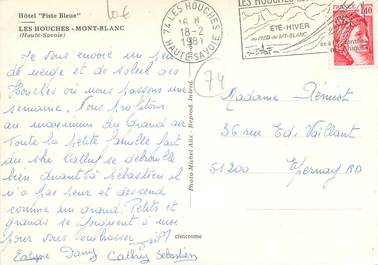 Hôtel "Piste Bleue"
LES HOUCHES - MONT-BLANC
(Haute-Savoie)
10 €
74 LES HOUCHES
18-2
1981
HAUTE-SAVOIE
LES HOUCHES
ÉTÉ-HIVER
AU PIED DU MT-BLANC
FRANCE
1,40
Je vous envoie un peu
de neige et de soleil des
Houches où nous passons une
semaine. Nous profitons
au maximum du grand air
Toute la petite famille fait
du ski Cathy se débrouille
bien quant à Sébastien il
n'a pas peur et descend
comme un grand. Petits et
grands se joignent à moi
pour vous embrasser
Evelyne Dany Cathy Sébastien
74
Photo-Michel Alix - Reprod. Interd.
cimcrome
Madame Démist
36 rue Ed. Vaillant
51200 Epernay RP